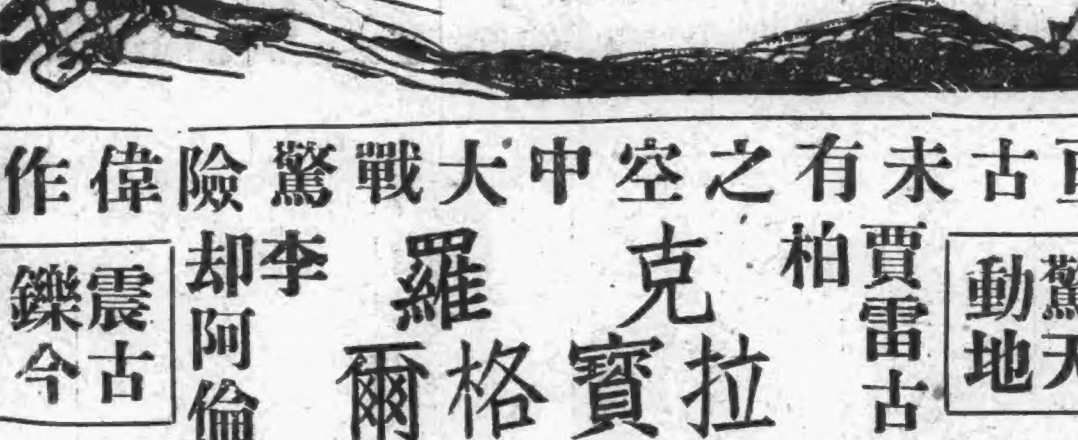 古未有之空中大戰驚險偉作
驚天
動地
賈雷古
柏
克
拉寶
羅
格爾
李
却阿倫
震古
鑠今